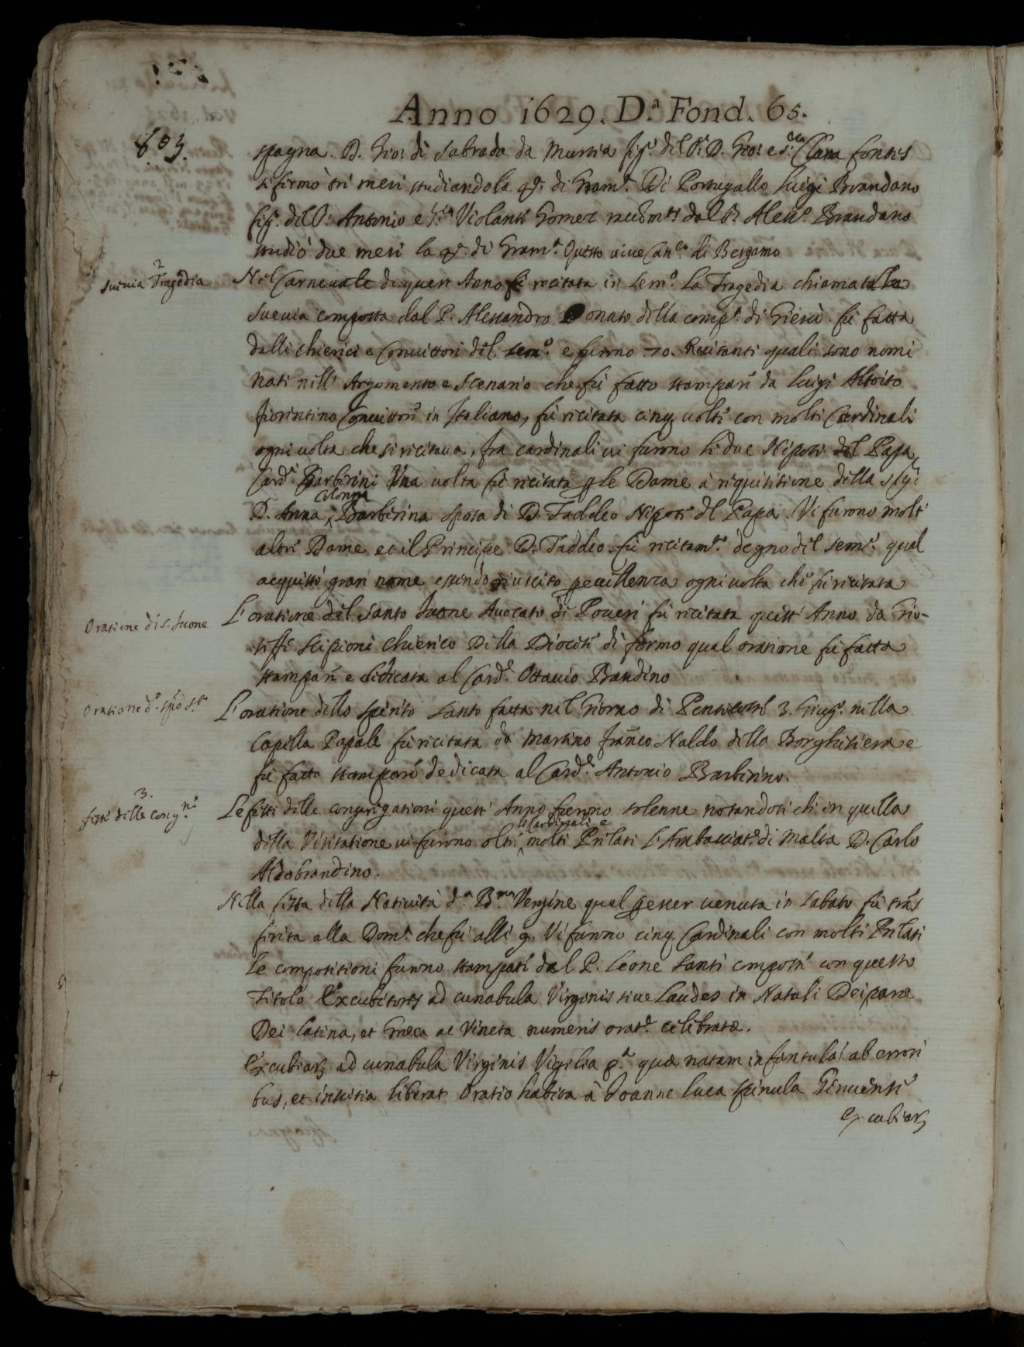 Anno 1629. D.ª Fond. 65.
803.
spagna. D. Gio: di Sabrada da Mursia fig.º del S.r D. Gio: e S.ra Clara fontes
si fermò tri mesi studiandola di Gram.ª Di Portugallo Luigi Brandano
fig.º del S.r Antonio e S.ra Violante Gomez raccom.to dal P. Aless.º Brandano
studiò due mesi la di Gram.ª Questo vive Can.co di Bergamo
2
Suevia Tragedia
Nel Carnevale di quest Anno fu recitata in Sem.º La Tragedia chiamata la
Suevia composta dal P. Alessandro Donato della comp.ª di Giesù. fu fatta
dalli chierici e Convittori del Sem.º e furno 70. Recitanti quali sono nomi
nati nell' Argomento e Scenario che fu fatto stampare da Luigi Altoito
fiorentino Convittore in Italiano, fu recitata cinq volte con molti Cardinali
ogni volta che si recitava, fra cardinali vi furno li due Nipoti del Papa
Card.i Barberini Una volta fu recitata p le Dame à requisitione della Sig.ª
Colonna
D. Anna Barberina sposa di D. Taddeo Nipote del Papa. Vi furono molte
altre Dame, et il Principe D. Taddeo. fu recitam.to degno del Sem.º qual
acquistò gran nome essendo riuscito p eccellenza ogni volta che fu recitata
Oratione di S. Ivone
L'oratione del Santo Ivone Avocato di Poveri fu recitata quest' Anno da Gio-
seffe Scipioni chierico della Diocesi di fermo qual oratione fu fatta
stampare e dedicata al Card.l Ottavio Bandino
Oratione d.º spò S.to
L'oratione dello Spirito Santo fatta nel Giorno di Pentecoste 3. Giug.º nella
Capella Papale fu recitata da Martino franco Naldo della Borghesiera e
fu fatta stampare dedicata al Card.l Antonio Barberino.
3.
feste delle cong.ni
Le feste delle congregationi quest' Anno furono solenne notandosi che in quella
Cardinali e
della Visitatione vi furono oltre molti Prelati L'Ambasciat.re di Malta D. Carlo
Aldobrandino.
Nella festa della Natività d.ª B.ma Vergine qual p esser venuta in Sabato fu tras
ferita alla Dom.ca che fu alli 9. Vi furno cinq Cardinali con molti Prelati
Le compositioni furno stampate dal P. Leone Santi composte con questo
Titolo Excubitores ad cunabula Virginis sive Laudes in Natali Deiparæ
Dei Latina, et Græca ac Vineta numeris orat.e celebratæ.
Excubiar. ad cunabula Virginis Vigilia p.ª quæ natam infantulā ab errori
bus, et inscitia liberat. Oratio habita à Joanne Luca Spinula Genuensi
Excubiar.